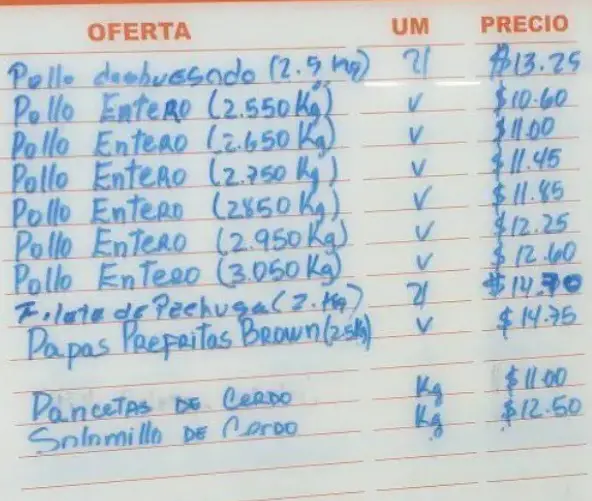 OFERTA UM PRECIO
Pollo deshuesado (2.5 Kg) u $13.25
Pollo Entero (2.550 Kg) v $10.60
Pollo Entero (2.650 Kg) v $11.00
Pollo Entero (2.750 Kg) v $11.45
Pollo Entero (2850 Kg) v $11.85
Pollo Entero (2.950 Kg) v $12.25
Pollo Entero (3.050 Kg) v $12.60
Filete de Pechuga (2. Kg) u $14.70
Papas Prefritas Brown (2.5 Kg) v $14.75
Pancetas DE CERDO Kg $11.00
Solomillo DE Cerdo Kg $12.50